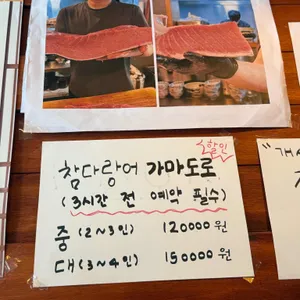 할인
참다랑어 가마도로
(3시간 전 예약 필수)
중 (2~3인) 120000원
대 (3~4인) 150000원
"개시